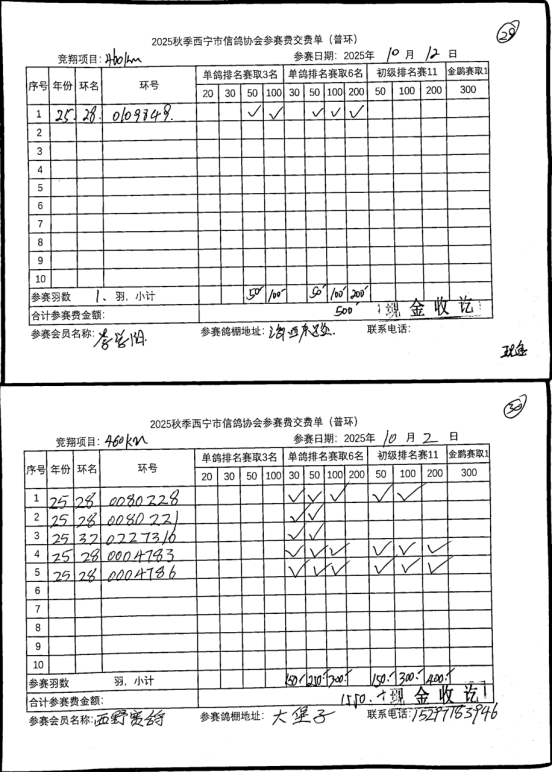 29
2025秋季西宁市信鸽协会参赛费交费单（普环）
竞翔项目：460km 参赛日期：2025年 10 月 12 日
序号 年份 环名 环号 单鸽排名赛取3名 单鸽排名赛取6名 初级排名赛11 金鹏赛取1
20 30 50 100 30 50 100 200 50 100 200 300
1 25 28 0109849 ✓ ✓ ✓ ✓ ✓
2
3
4
5
6
7
8
9
10
参赛羽数 1、羽、小计 50 100 50 100 200
合计参赛费金额： 500 现金收讫
参赛会员名称： 参赛鸽棚地址： 联系电话：
现金
30
2025秋季西宁市信鸽协会参赛费交费单（普环）
竞翔项目：460km 参赛日期：2025年 10 月 2 日
序号 年份 环名 环号 单鸽排名赛取3名 单鸽排名赛取6名 初级排名赛11 金鹏赛取1
20 30 50 100 30 50 100 200 50 100 200 300
1 25 28 0080228 ✓ ✓ ✓ ✓ ✓
2 25 28 0080221 ✓ ✓
3 25 32 0227316 ✓ ✓
4 25 28 0004783 ✓ ✓ ✓ ✓ ✓ ✓
5 25 28 0004786 ✓ ✓ ✓ ✓ ✓ ✓
6
7
8
9
10
参赛羽数 羽、小计 150 250 300 150 300 400
合计参赛费金额： 1550 现金收讫
参赛会员名称：西野赛鸽 参赛鸽棚地址：大堡子 联系电话：15297183946